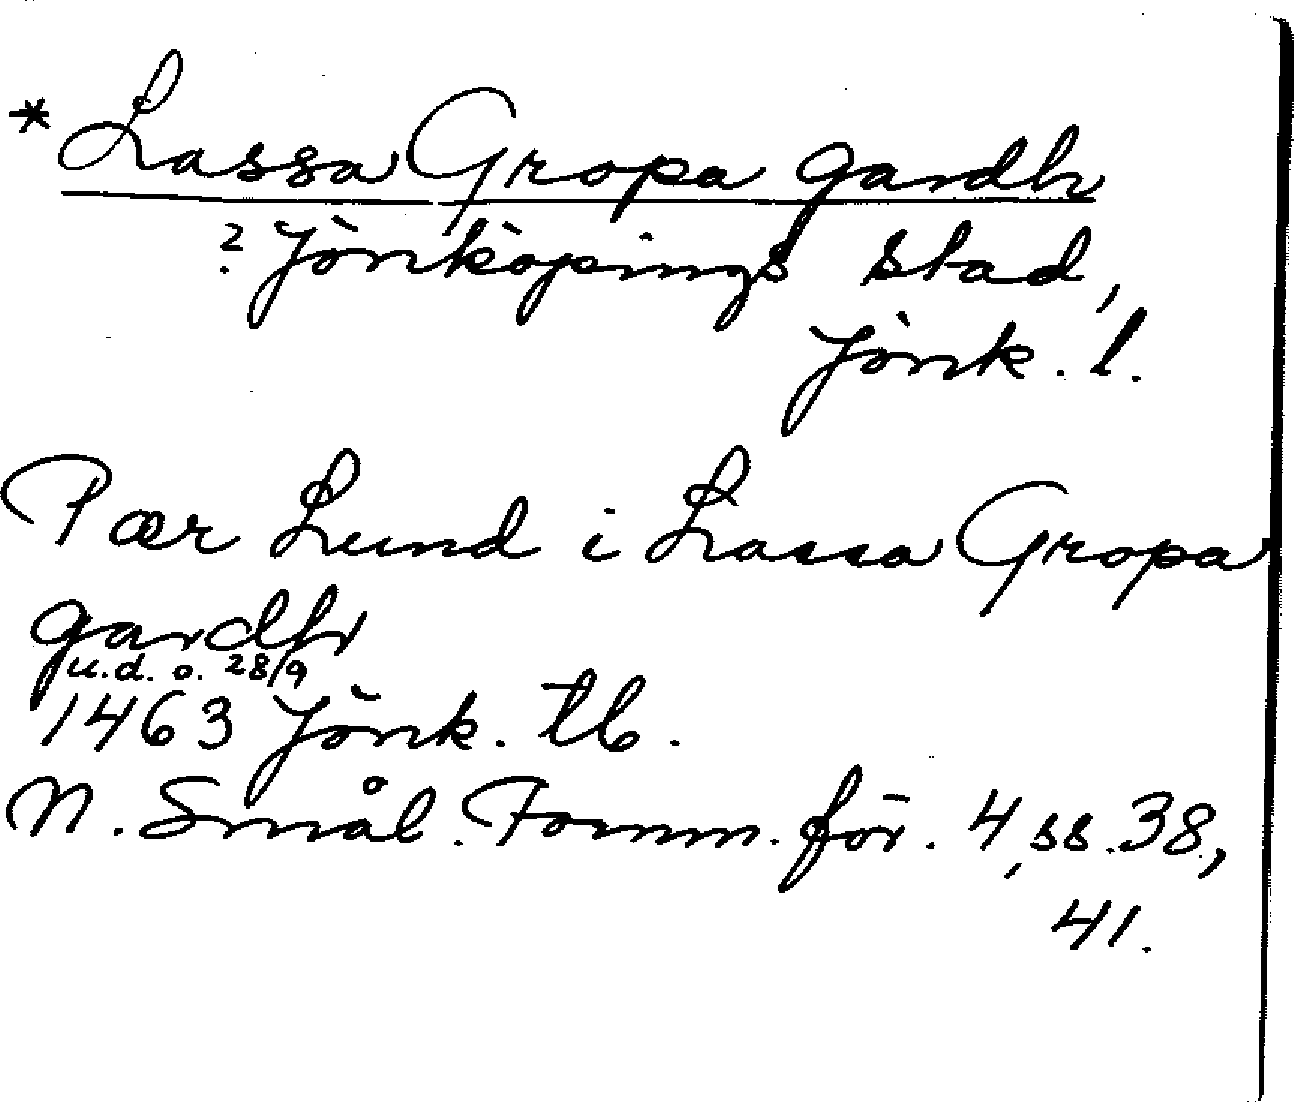 * Lassa Gropa gardh
? Jönköpings stad,
Jönk. l.
Pær Lund i Lassa Gropa
gardh
u.d. o. 28/9
1463 Jönk. tb.
N. Smål. Fornm. för. 4, ss. 38,
41.